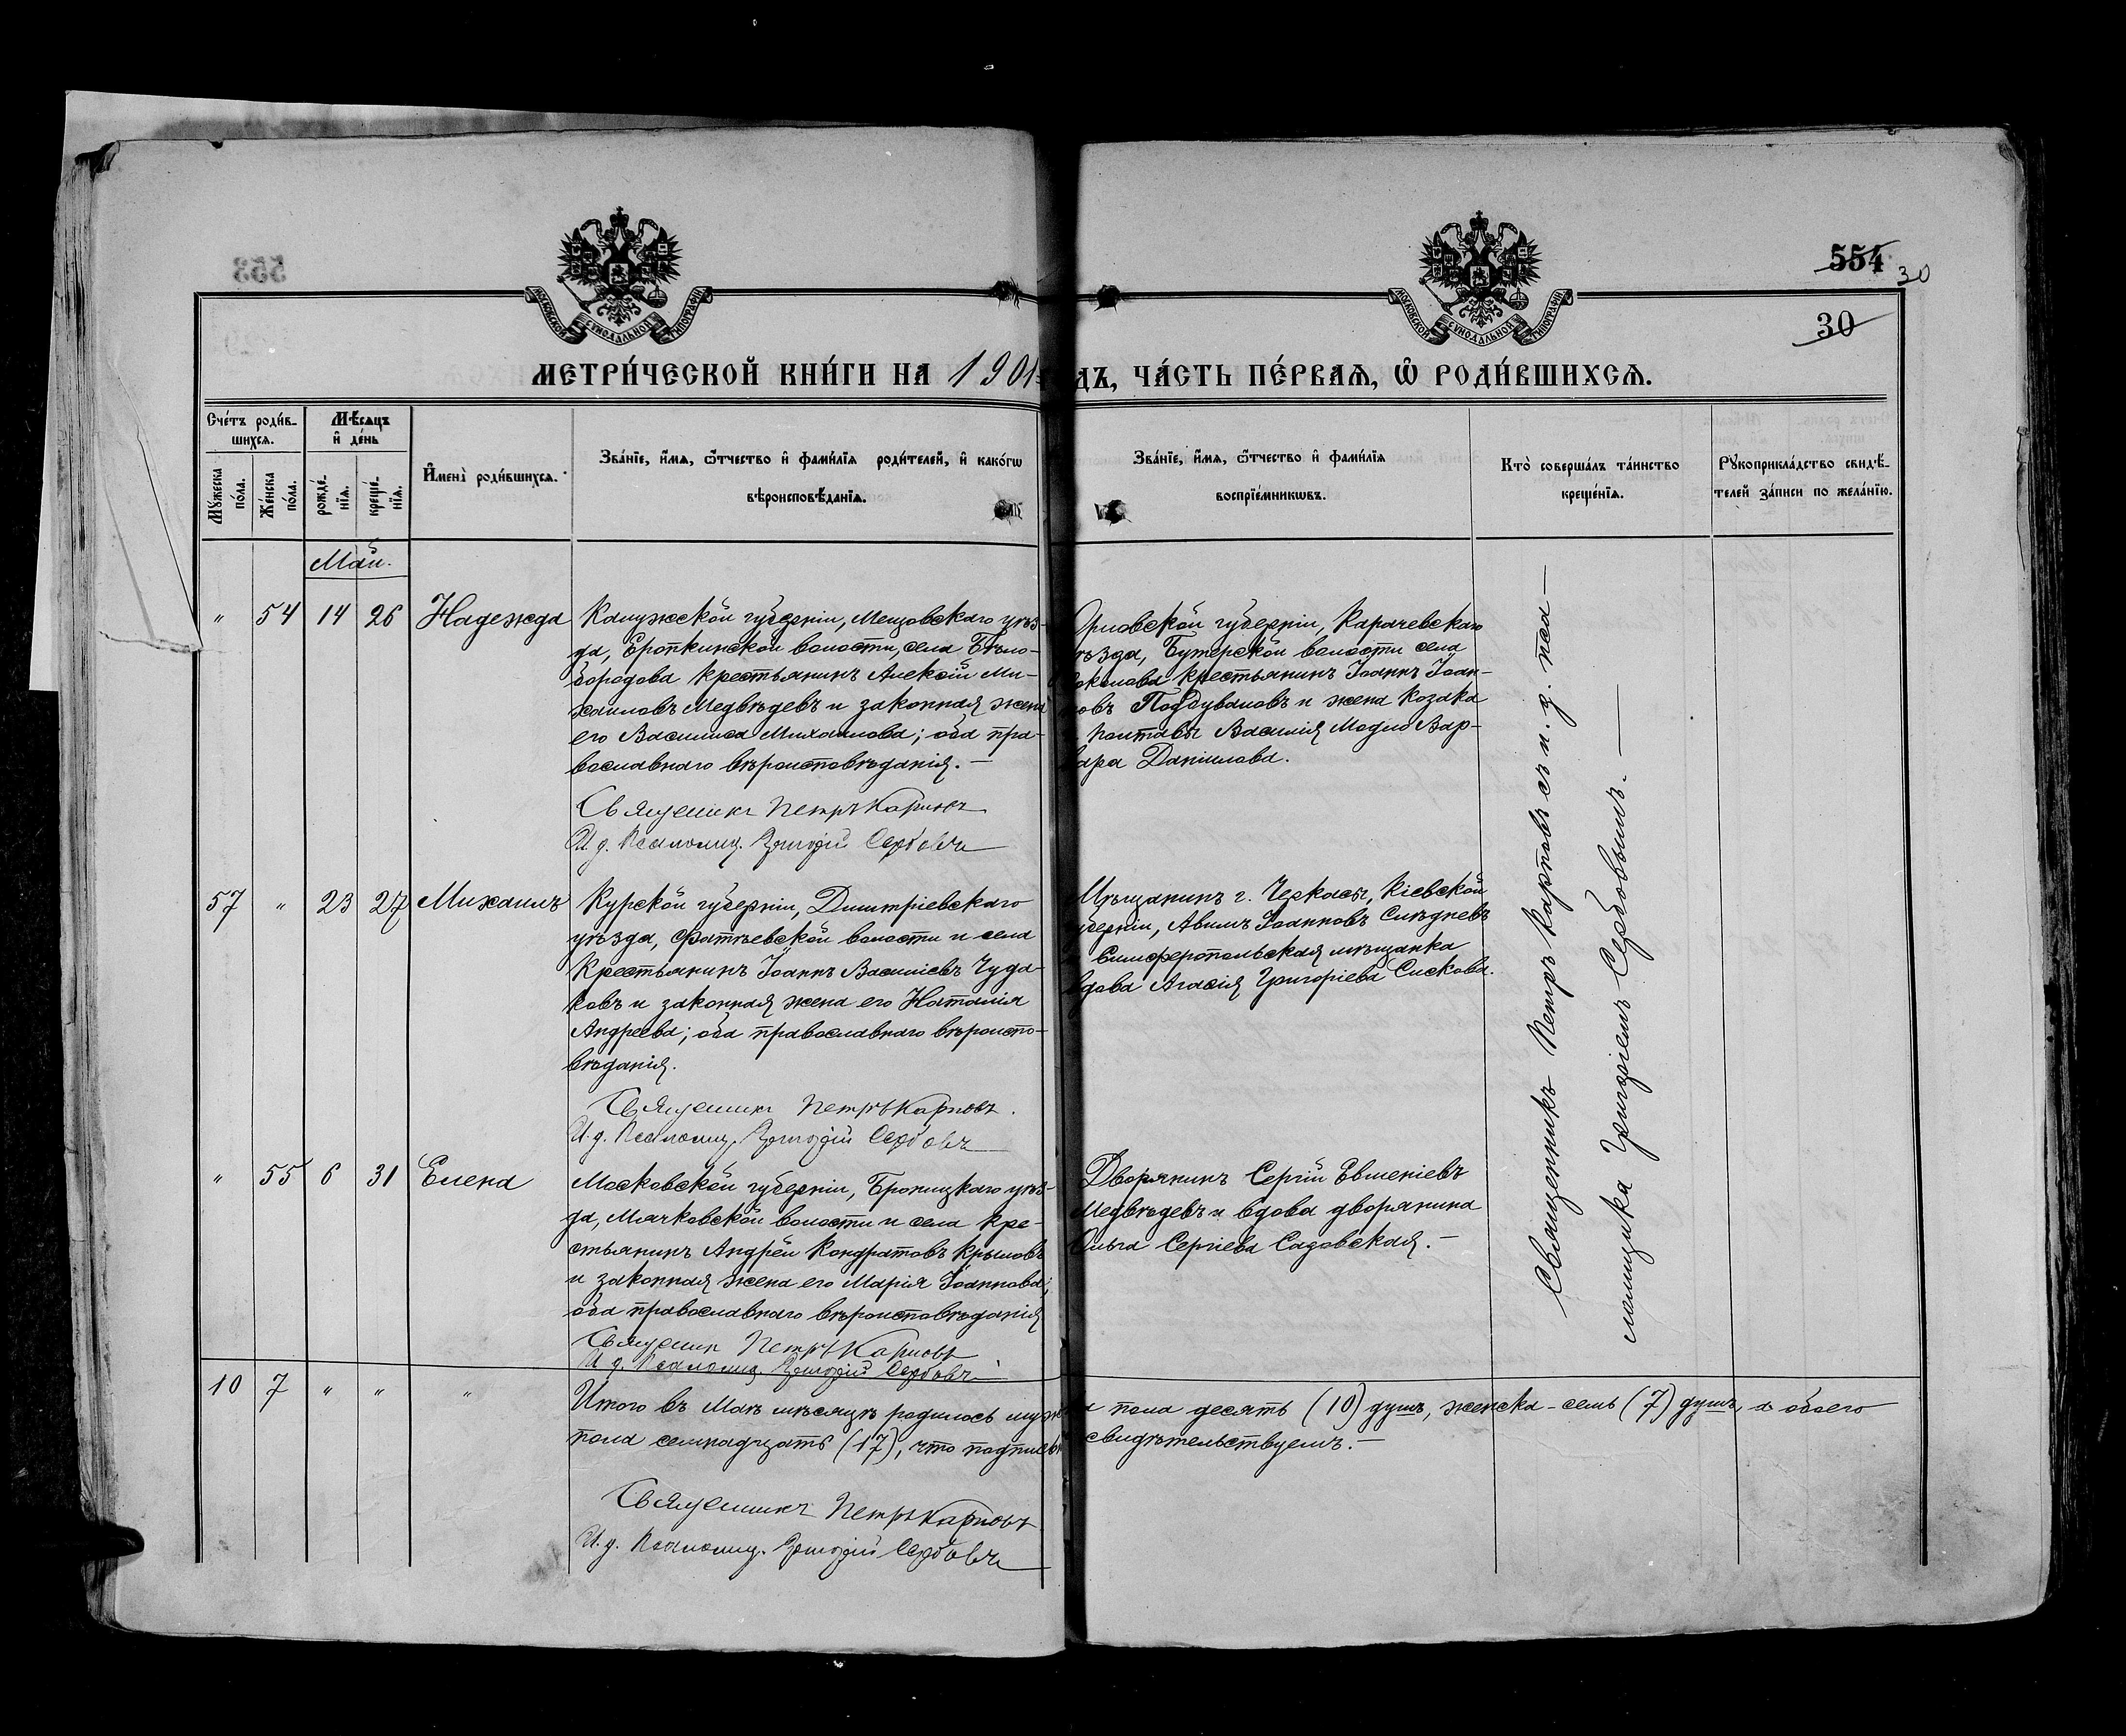 553
554
30
30
МОСКОВСКОЙ СѴНОДАЛЬНОЙ ТИПОГРАФІИ
МОСКОВСКОЙ СѴНОДАЛЬНОЙ ТИПОГРАФІИ
МЕТРИ́ЧЕСКОЙ КНИ́ГИ НА 1901 ДЪ, ЧА́СТЬ ПЕ́РВАѦ, Ѽ РОДИ́ВШИХСѦ.
Сче́тъ роди́в-
шихсѧ.
Мꙋ́жеска
по́ла.
Же́нска
по́ла.
Мѣ́сѧцъ
и҆ де́нь
рожде́-
нїѧ.
креще́-
нїѧ.
И҆мена̀ роди́вшихсѧ.
Зва́нїе, и҆́мѧ, ѻ҆́тчество и҆ фами́лїѧ роди́телей, и҆ како́гѡ
вѣроисповѣ́данїѧ.
Зва́нїе, и҆́мѧ, ѻ҆́тчество и҆ фами́лїѧ
воспрїе́мникѡвъ.
Кто̀ соверша́лъ та́инство
креще́нїѧ.
Рꙋкоприкла́дство свидѣ́-
телей за́писи по жела́нїю.
Май.
" 54 14 26 Надежда
Калужской губерніи, Мещовскаго уѣз-
да, Еропкинской волости, села Бѣло-
бородова крестьянинъ Алексій Ми-
хаиловъ Медвѣдевъ и законная жена
его Василиса Михаилова; оба пра-
вославнаго вѣроисповѣданія. —
Священникъ Петръ Карповъ
И. д. Псаломщ. Григорій Сербовъ
Орловской губерніи, Карачевскаго
ѣзда, Бутерской волости села
крестьянинъ Іоаннъ Іоан-
овъ Поддуваловъ и жена козака
Полтавы Василія Вар-
ара Даніилова.
57 " 23 27 Михаилъ
Курской губерніи, Димитріевскаго
уѣзда, Фатѣевской волости и села
Крестьянинъ Іоаннъ Василіевъ Чуда-
ковъ и законная жена его Наталія
Андреева; оба православнаго вѣроиспо-
вѣданія.
Священникъ Петръ Карповъ.
И. д. Псаломщ. Григорій Сербовъ
Мѣщанинъ г. Черкасъ, Кіевской
уберніи, Авимъ Іоанновъ Слѣдневъ
Симферопольская мѣщанка
вдова Агасія Григоріева Сискова.
" 55 6 31 Елена
Московской губерніи, Броницкаго уѣз-
да, Мячковской волости и села кре-
стьянинъ Андрей Кондратовъ Крыловъ
и законная жена его Марія Іоаннова;
оба православнаго вѣроисповѣданія
Священник Петръ Карповъ
И. д. Псаломщ. Григорій Сербовъ
Дворянинъ Сергій Евменіевъ
Медвѣдевъ и вдова дворянина
Ольга Сергіева Садовская. —
Священникъ Петръ Карповъ съ и. д. пса-
ломщика Григоріемъ Сербовымъ. —
10 7 " " "
Итого въ Маѣ мѣсяцѣ родилось муж а пола десять (10) душъ, женска - семь (7) душъ, а обоего
пола семнадцать (17), что подписью свидѣтельствуемъ. —
Священникъ Петръ Карповъ
И. д. Псаломщ. Григорій Сербовъ